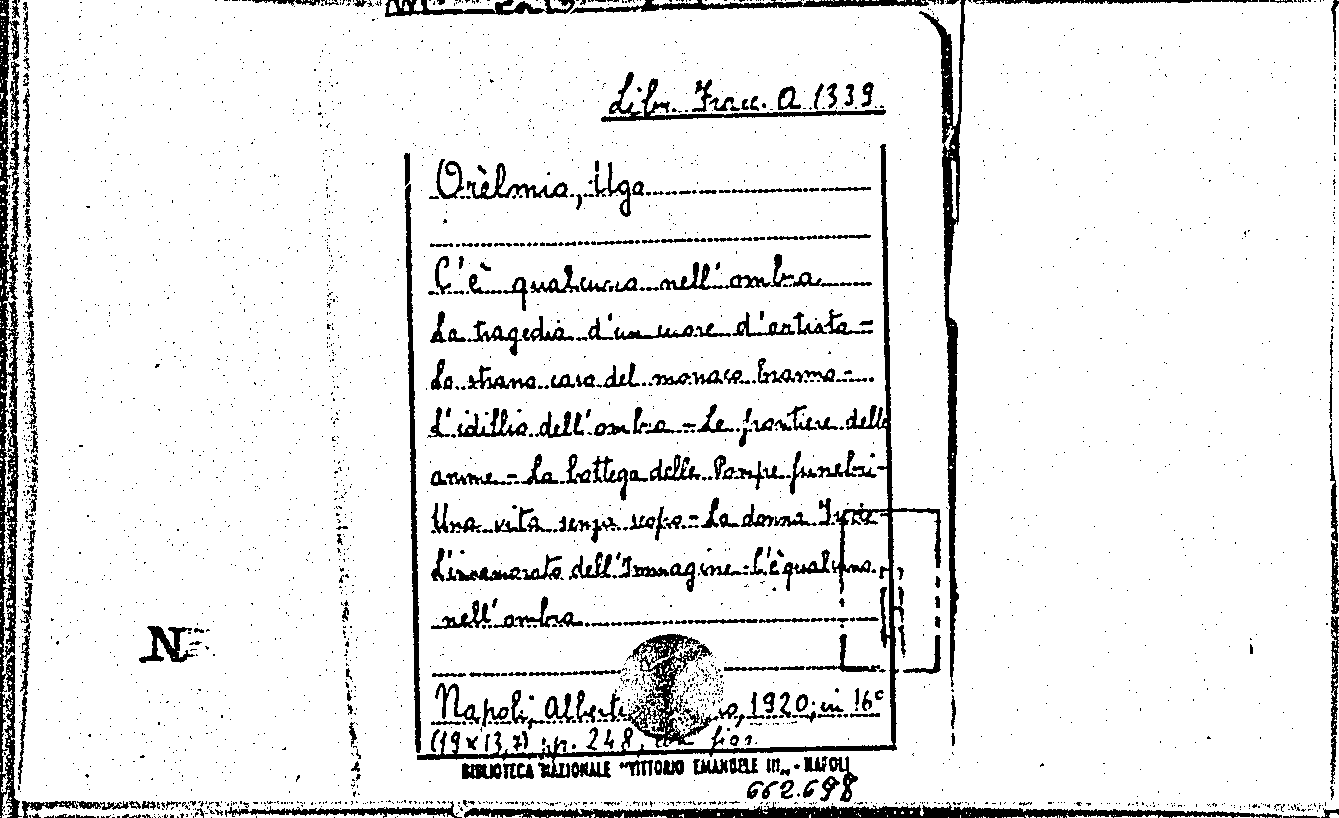 Libr. Frac. A 1339
Orèlmia, Uga
C'è qualcuno nell'ombra
La tragedia d'un cuore d'artista -
Lo strano caso del monaco bramo -
L'idillio dell'ombra - Le frontiere delle
anime - La bottega delle Pompe funebri -
Una vita senza scopo - La donna
L'innamorato dell'Immagine - C'è qualcuno
nell'ombra
Napoli, 1920; in 16°
(19 x 13,7) pp. 248,
BIBLIOTECA NAZIONALE "VITTORIO EMANUELE III" - NAPOLI
662.698
N